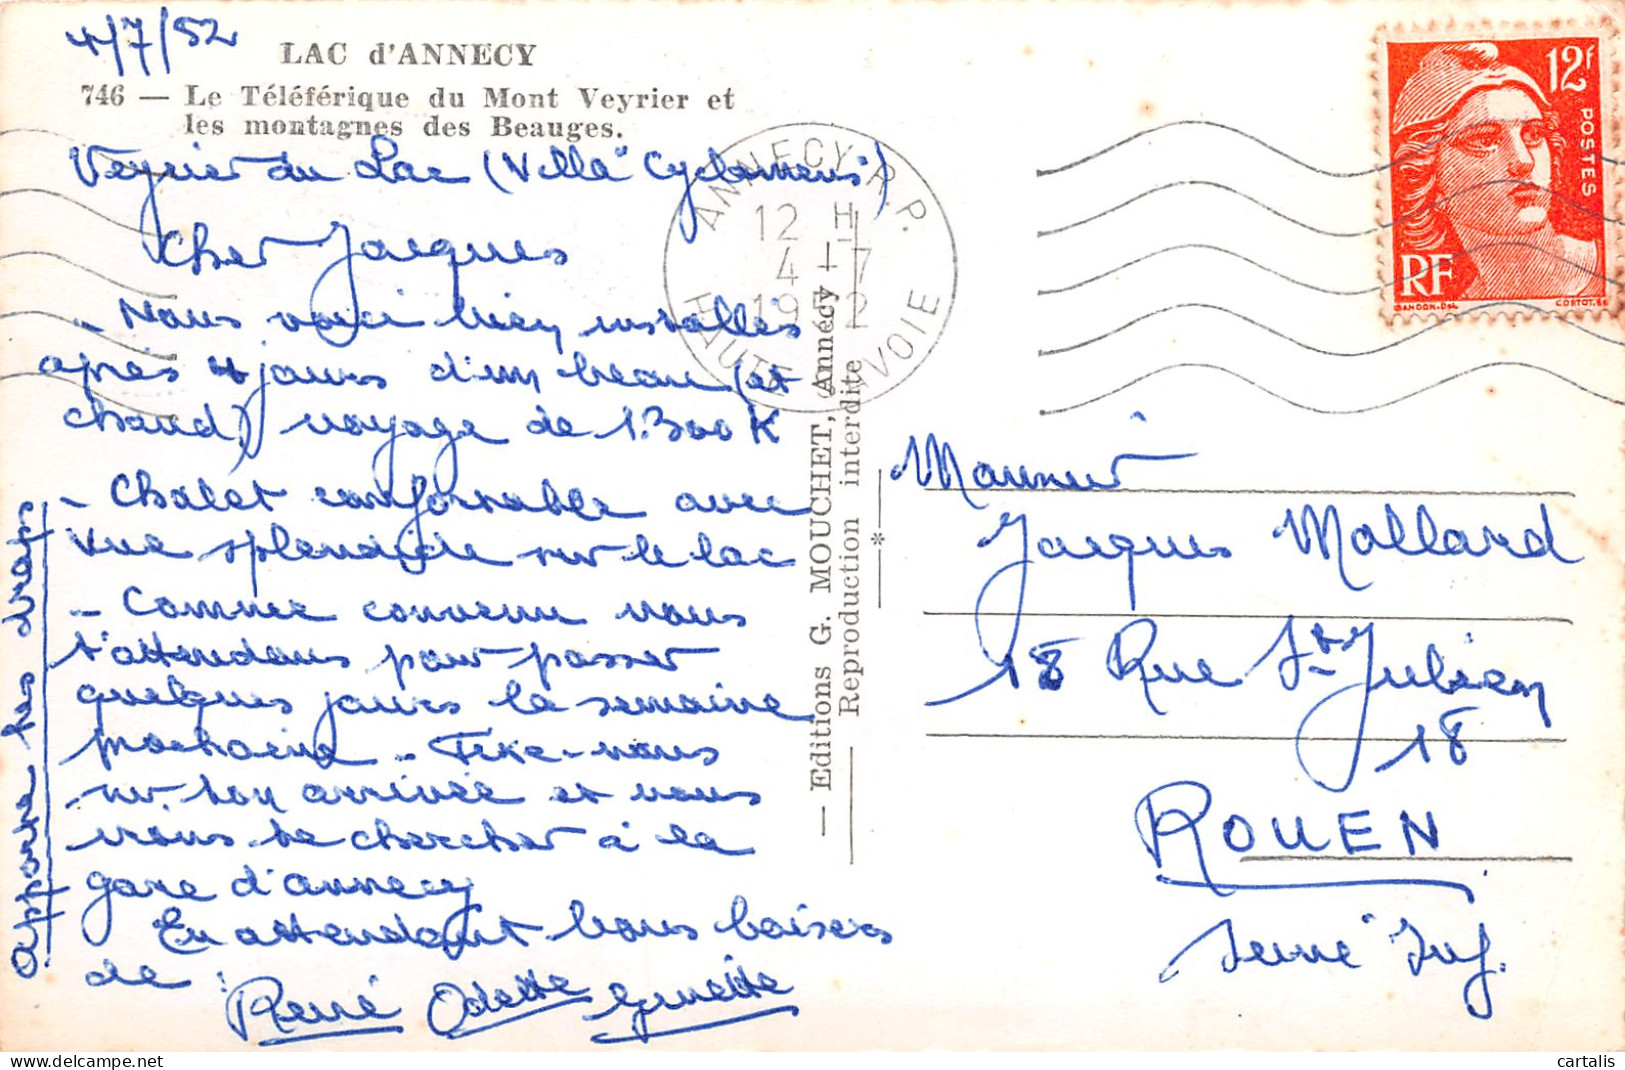 4/7/52
LAC d'ANNECY
746 — Le Téléférique du Mont Veyrier et
les montagnes des Beauges.
Veyrier du Lac (Villa "Cyclamens")
Cher Jacques
- Nous voici bien installés
après 4 jours d'un beau (et
chaud) voyage de 1.300 K
- Chalet confortable avec
vue splendide sur le lac
- Comme convenu nous
t'attendons pour passer
quelques jours la semaine
prochaine - Fixe-nous
sur ton arrivée et nous
irons te chercher à la
gare d'annecy
En attendant bons baisers
de :
René Odette Ginette
apporte tes draps
— Editions G. MOUCHET, Annécy —
Reproduction interdite
ANNECY R.P.
12 H
4 - 7
1952
HAUTE SAVOIE
12F
POSTES
RF
GANDON.DEL
CORTOT.SC
Monsieur
Jacques Mallard
18 Rue St Julien
18
ROUEN
Seine Inf.
cartalis